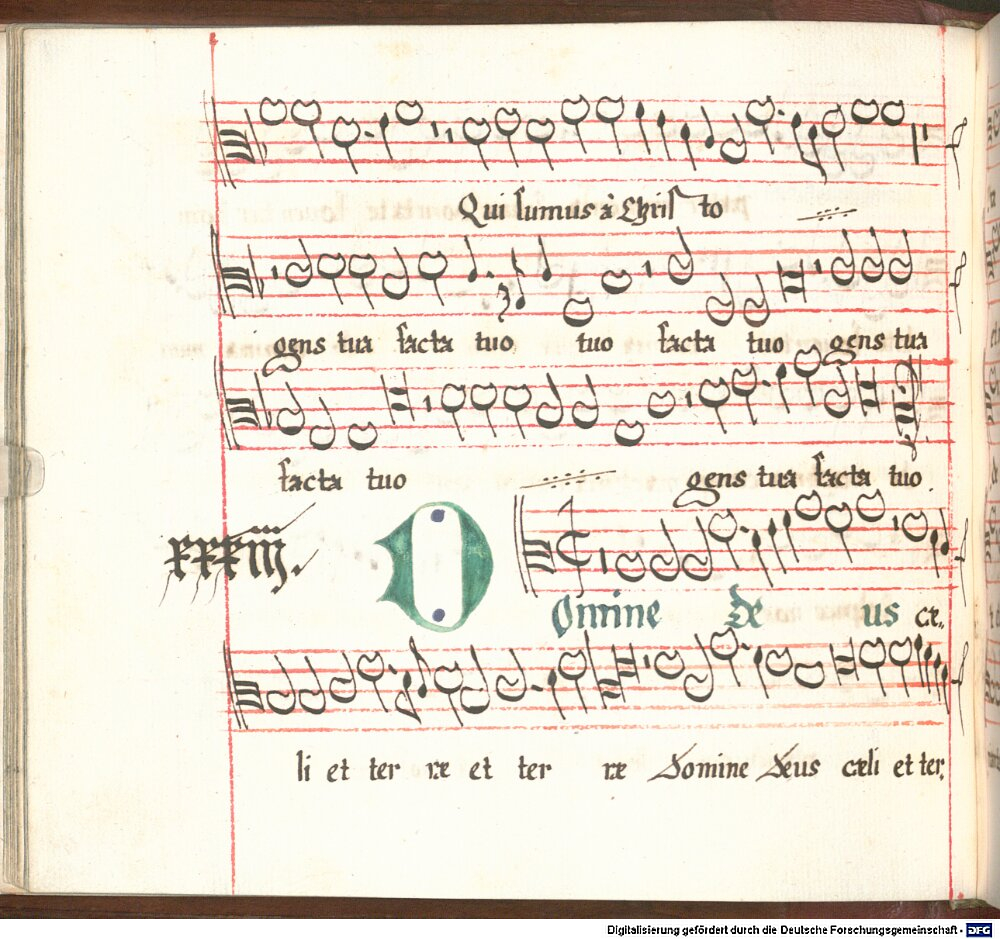 Qui sumus à Christo
gens tua facta tuo tuo facta tuo gens tua
facta tuo gens tua facta tuo.
xxxiij.
Domine Deus cæ„
li et ter ræ et ter ræ Domine Deus cæli et ter,
Digitalisierung gefördert durch die Deutsche Forschungsgemeinschaft - DFG